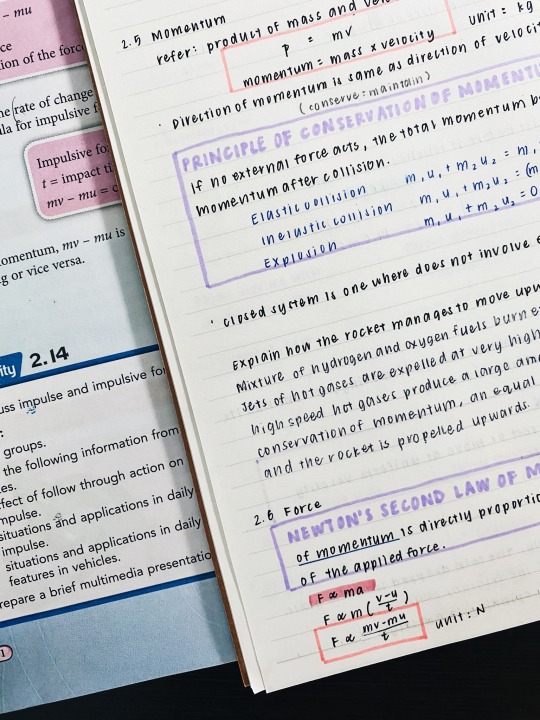 – mu
ce
ion of the force
he rate of change
la for impulsive f
Impulsive fo
t = impact ti
mv – mu = c
omentum, mv – mu is
g or vice versa.
ity 2.14
uss impulse and impulsive for
:
groups.
the following information from
es.
fect of follow through action on
mpulse.
situations and applications in daily
impulse.
situations and applications in daily
features in vehicles.
repare a brief multimedia presentatio
1
2.5 Momentum
refer: product of mass and velo
P = mv
unit: kg
momentum = mass x velocity
Direction of momentum is same as direction of velocit
(conserve: maintain)
PRINCIPLE OF CONSERVATION OF MOMENTU
If no external force acts, the total momentum b
momentum after collision.
Elastic collision m, u, + m2 u2 = m,
Inelastic collision m, u, + m2 u2 = (m
Explosion m, u, + m2 u2 = 0
closed system is one where does not involve e
Explain how the rocket manages to move upw
Mixture of hydrogen and oxygen fuels burn e
Jets of hot gases are expelled at very high
high speed hot gases produce a large am
conservation of momentum, an equal
and the rocket is propelled upwards.
2.6 Force
NEWTON'S SECOND LAW OF M
of momentum is directly proportio
of the applied force.
F ∝ ma
F ∝ m (v-u/t)
F ∝ mv-mu/t unit: N